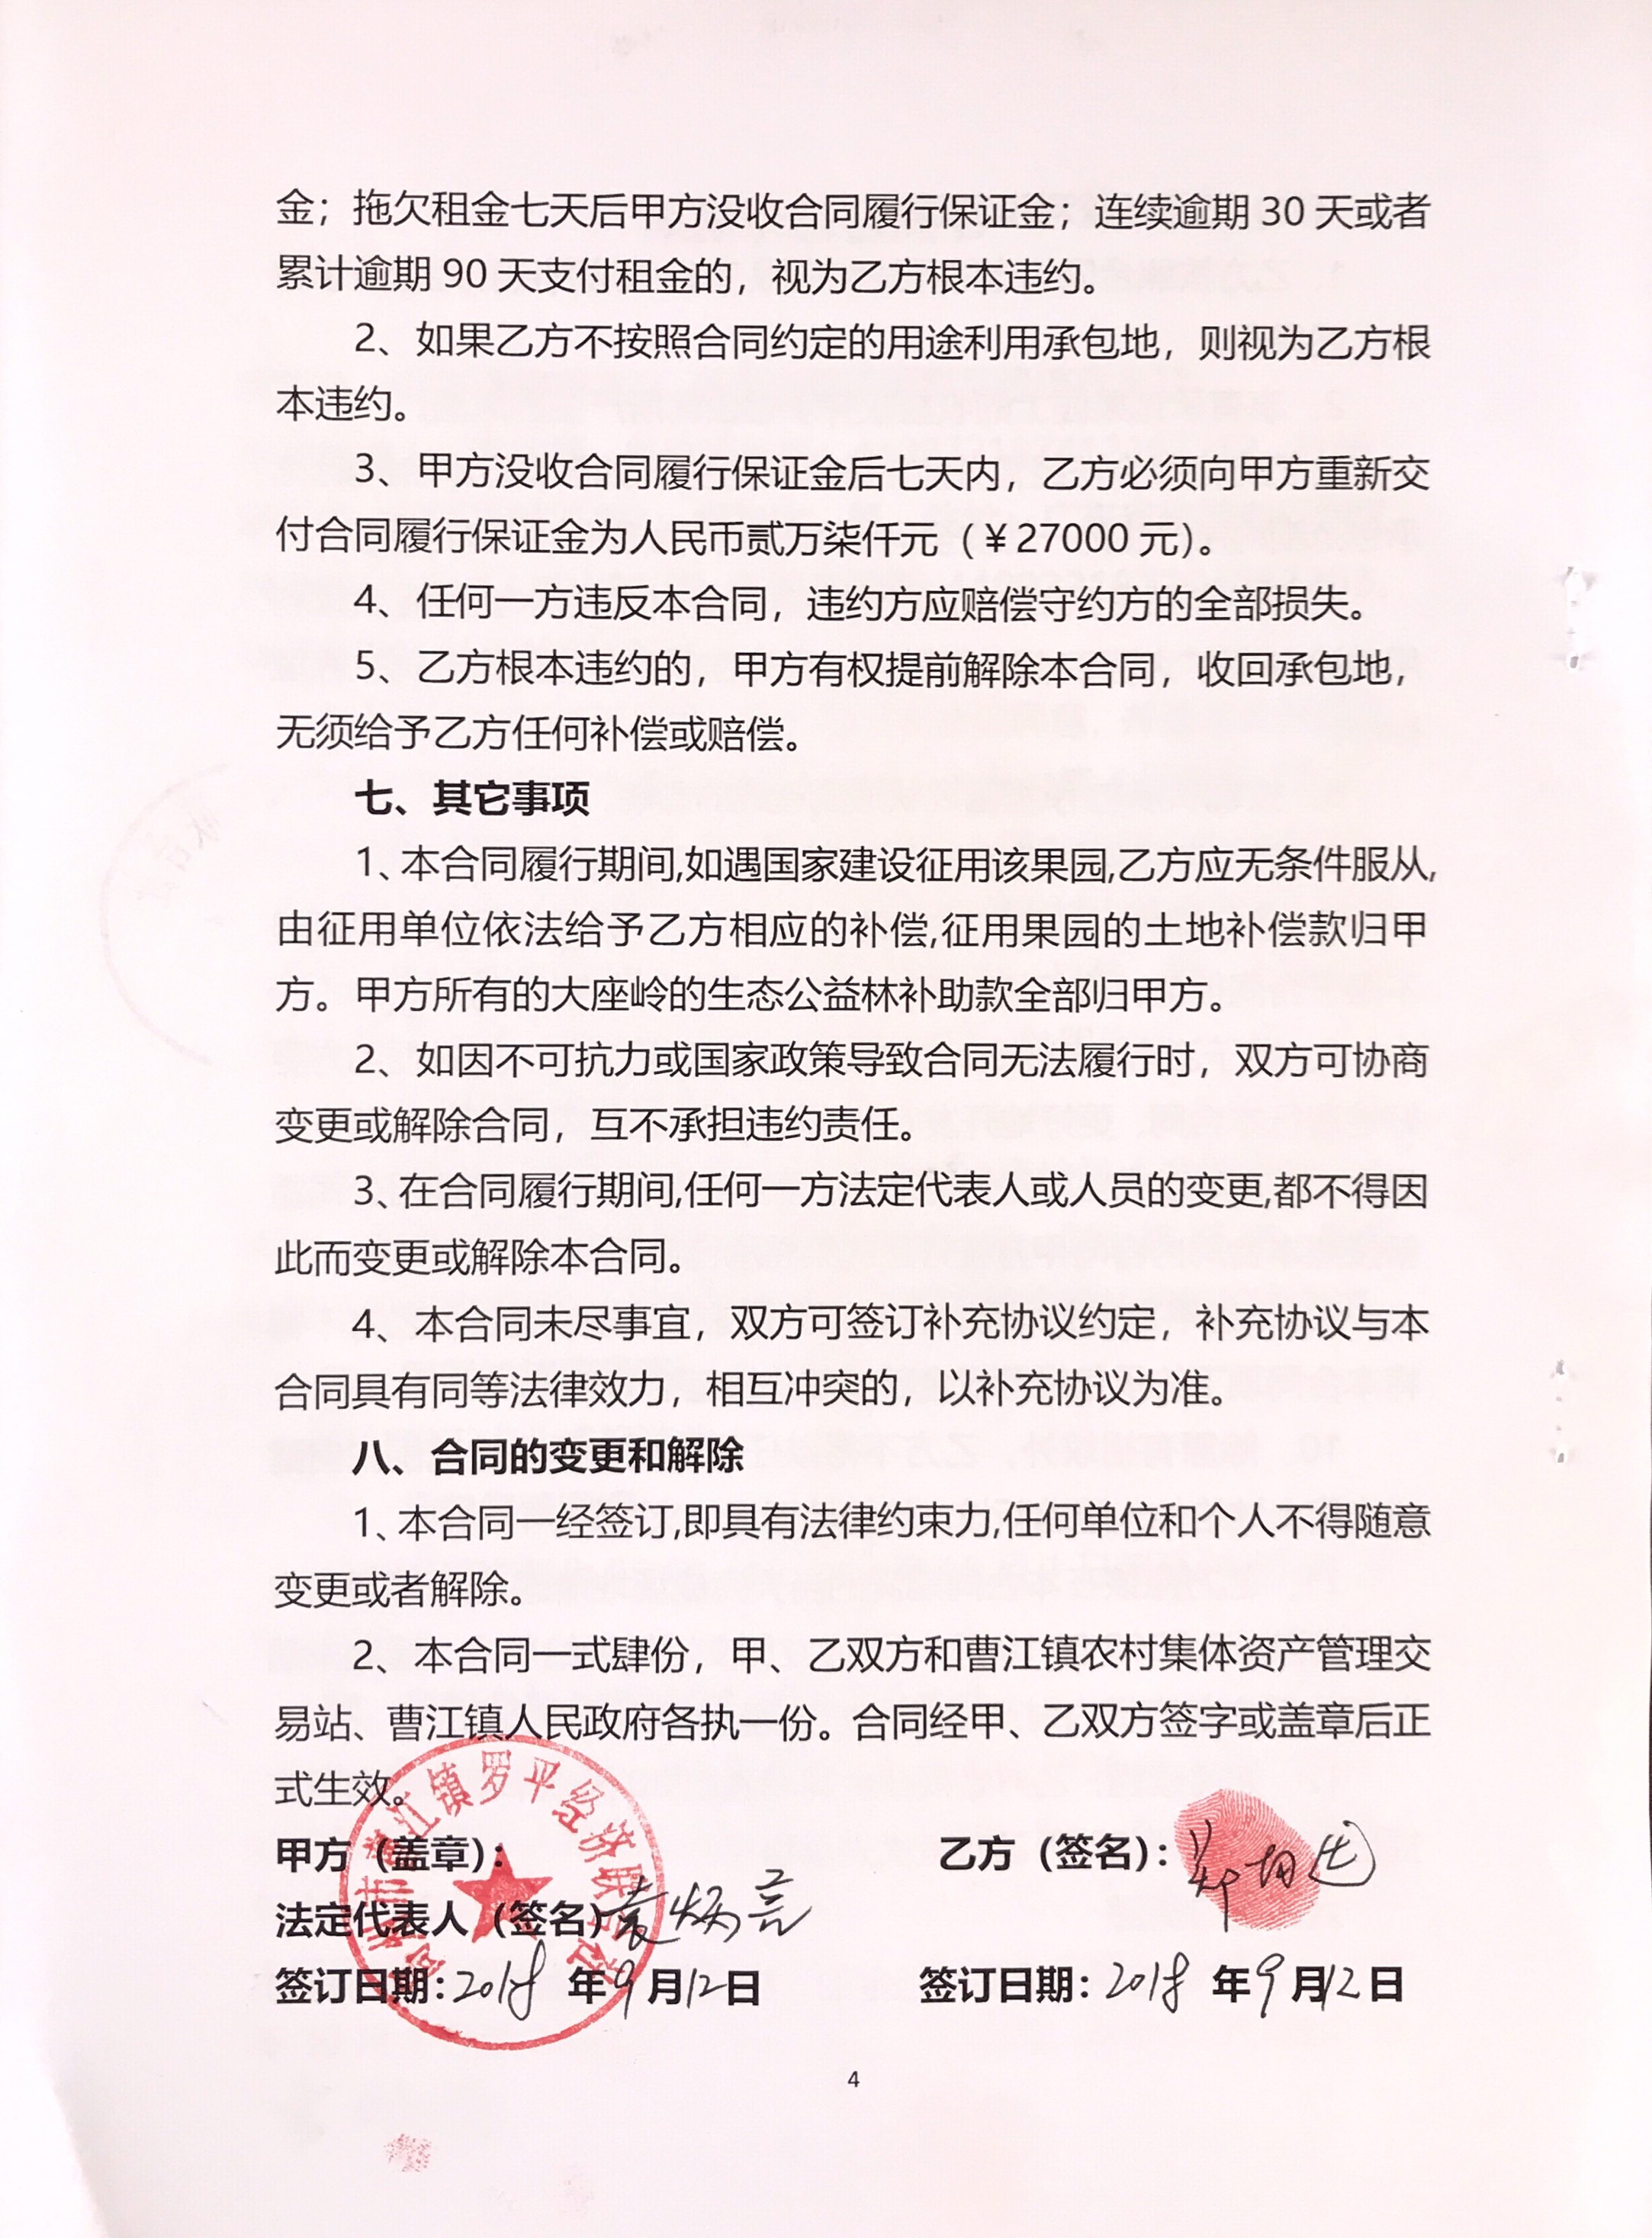 金；拖欠租金七天后甲方没收合同履行保证金；连续逾期 30 天或者
累计逾期 90 天支付租金的，视为乙方根本违约。
2、如果乙方不按照合同约定的用途利用承包地，则视为乙方根
本违约。
3、甲方没收合同履行保证金后七天内，乙方必须向甲方重新交
付合同履行保证金为人民币贰万柒仟元（￥27000 元）。
4、任何一方违反本合同，违约方应赔偿守约方的全部损失。
5、乙方根本违约的，甲方有权提前解除本合同，收回承包地，
无须给予乙方任何补偿或赔偿。
七、其它事项
1、本合同履行期间,如遇国家建设征用该果园,乙方应无条件服从,
由征用单位依法给予乙方相应的补偿,征用果园的土地补偿款归甲
方。甲方所有的大座岭的生态公益林补助款全部归甲方。
2、如因不可抗力或国家政策导致合同无法履行时，双方可协商
变更或解除合同，互不承担违约责任。
3、在合同履行期间,任何一方法定代表人或人员的变更,都不得因
此而变更或解除本合同。
4、本合同未尽事宜，双方可签订补充协议约定，补充协议与本
合同具有同等法律效力，相互冲突的，以补充协议为准。
八、合同的变更和解除
1、本合同一经签订,即具有法律约束力,任何单位和个人不得随意
变更或者解除。
2、本合同一式肆份，甲、乙双方和曹江镇农村集体资产管理交
易站、曹江镇人民政府各执一份。合同经甲、乙双方签字或盖章后正
式生效。
甲方（盖章）：
乙方（签名）：郑
法定代表人（签名）袁炳亮
高州市曹江镇罗平经济联合社
签订日期：2018 年 9 月 12 日
签订日期：2018 年 9 月 12 日
4